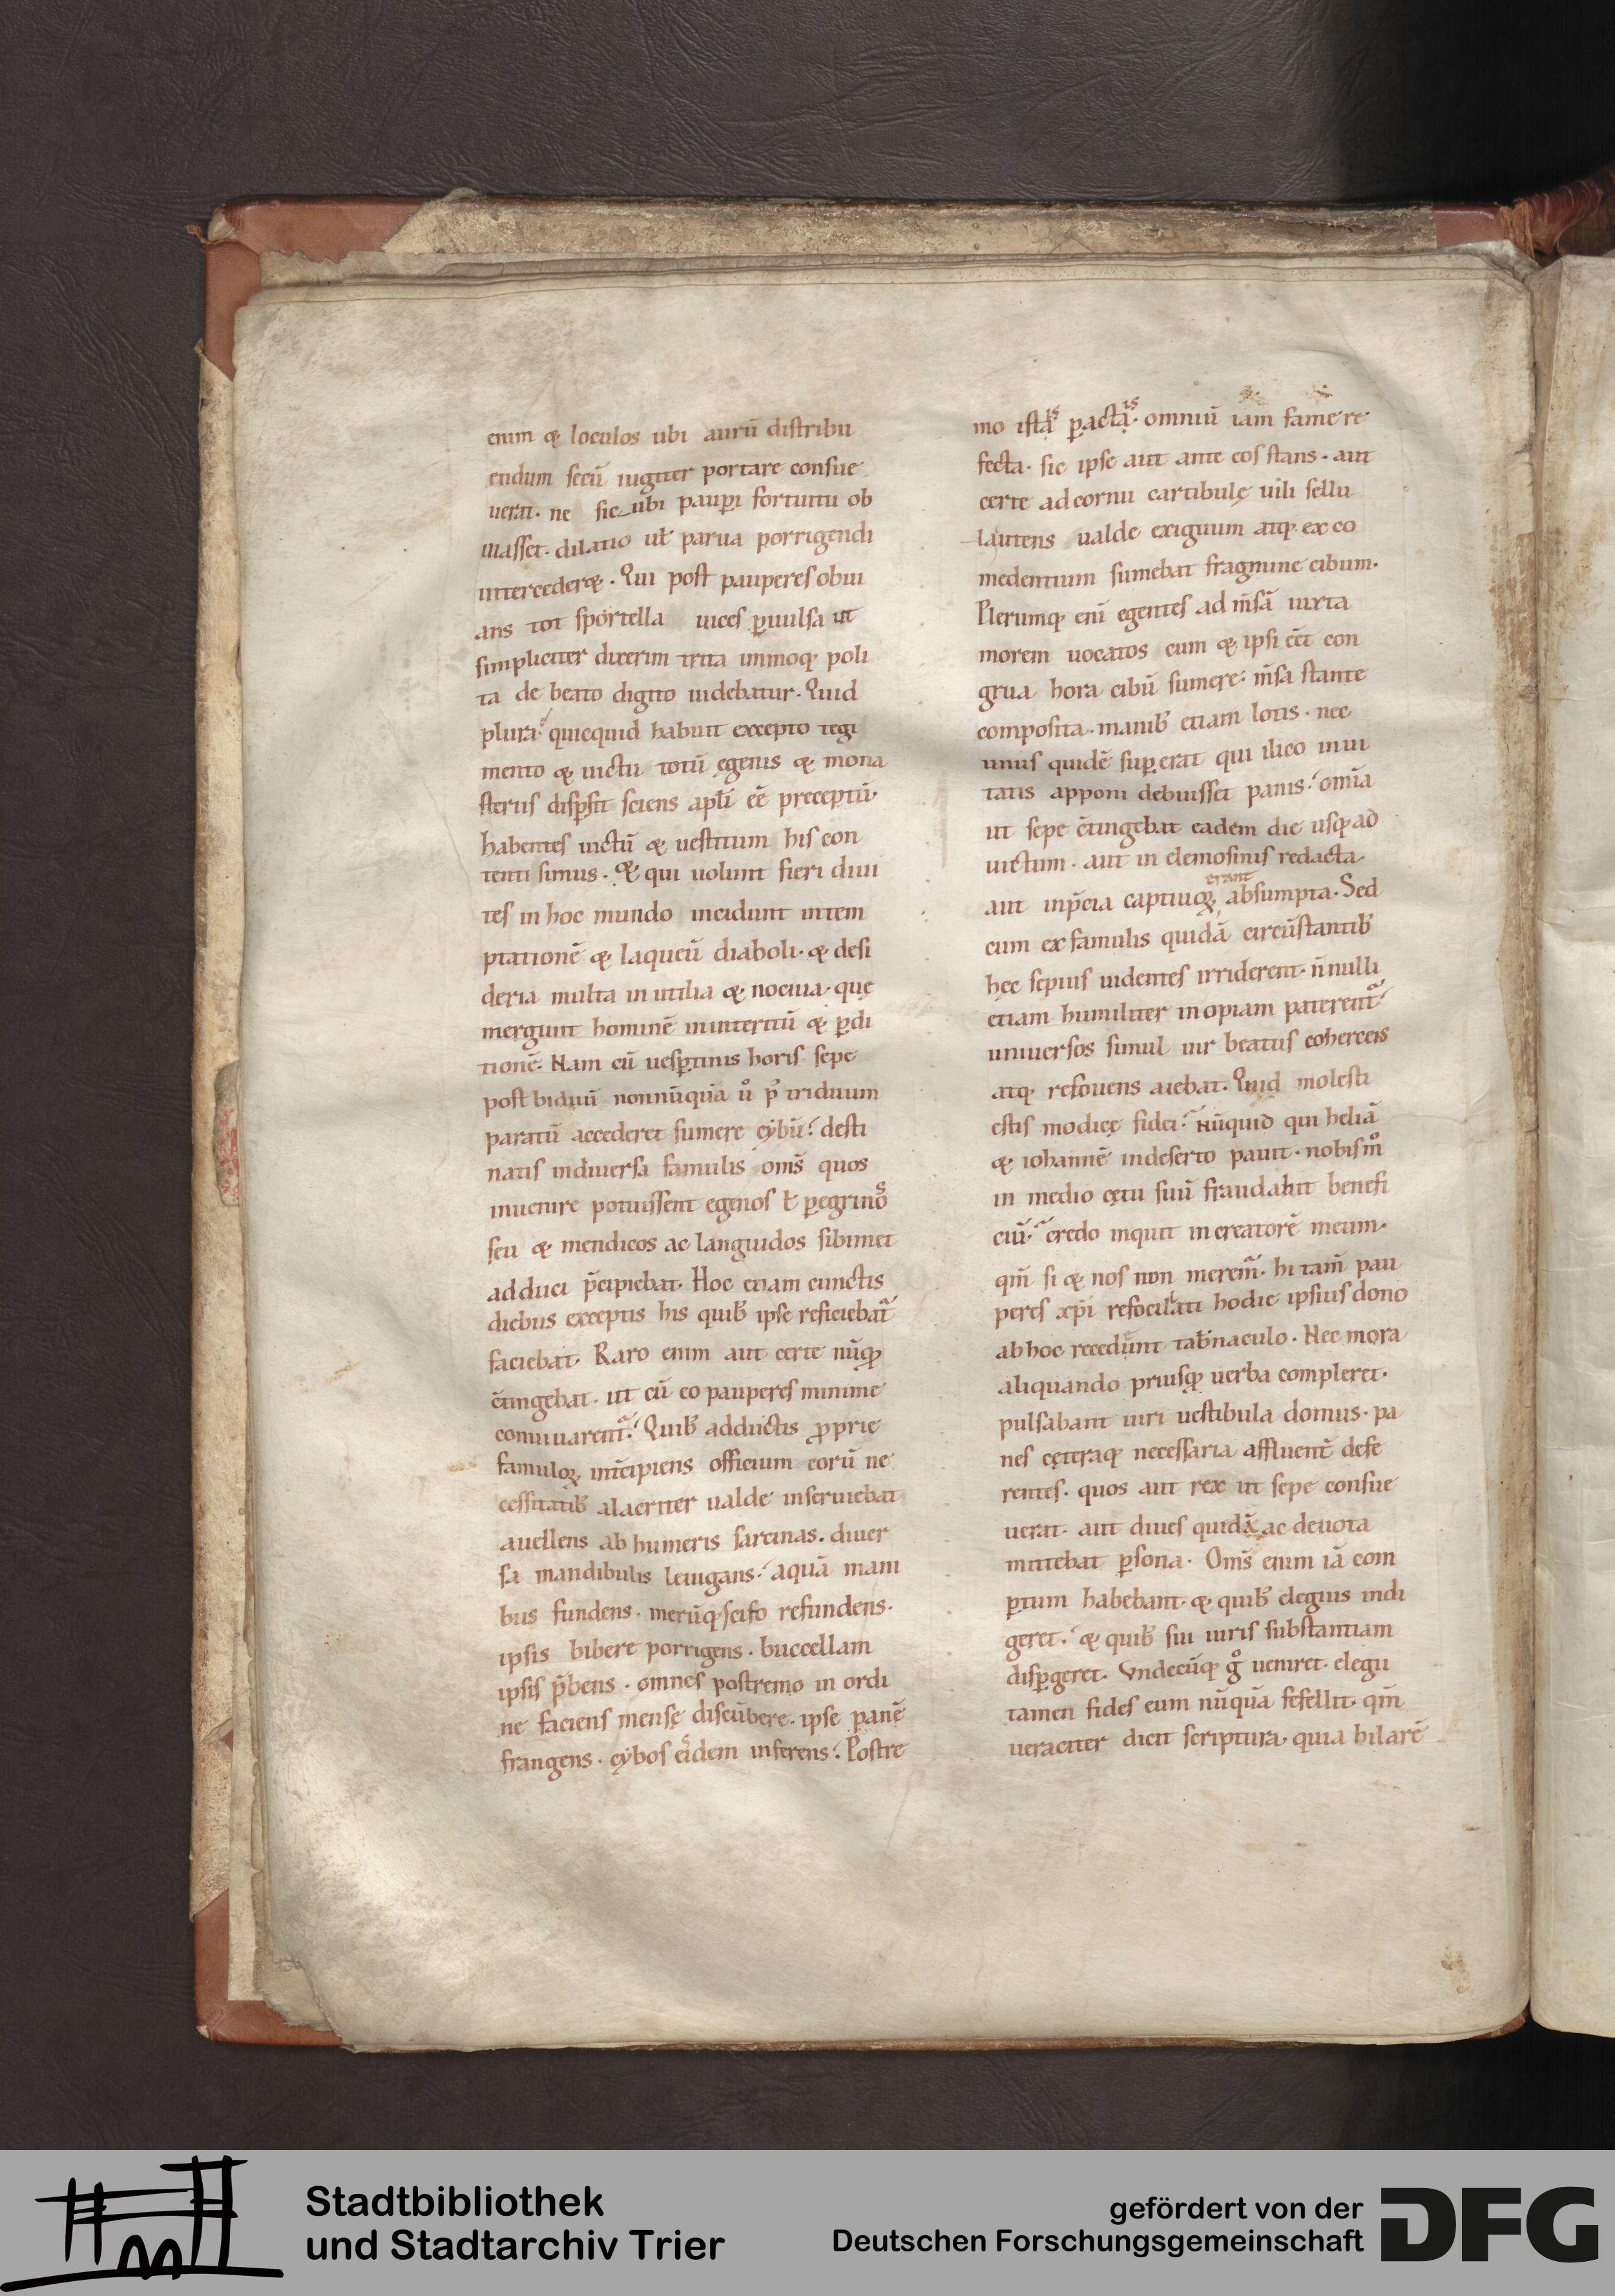 enim & loculos ubi aurū distribu
endum secū iugiter portare consue
uerat. ne sic ubi paup̄i fortuitu ob
uiasset. dilatio uł parua porrigendi
intercederet. Qui post pauperes obui
ans tot sportella uices p̄uulsa ut
simpliciter dixerim trita immoq; poli
ta de beato digito uidebatur. Quid
plura? quicquid habuit excepto tegi
mento & uictu totū egenis & mona
steriis disp̄sit sciens apłi ēē preceptū.
habentes uictū & uestitum his con
tenti simus. & qui uolunt fieri diui
tes in hoc mundo incidunt in tem
ptationē & laqueū diaboli. & desi
deria multa inutilia & nociua. quę
mergunt hominē in interitū & p̄di
tionē. Nam cū uesp̄tinis horis sepe
post biduū nonnūquā ů p̊ triduum
paratū accederet sumere cybū. desti
natis in diuersa famulis om̄s quos
inuenire potuissent egenos ł p̄egrinoˢ
seu & mendicos ac languidos sibimet
adduci p̄cipiebat. Hoc etiam cunctis
diebus exceptis his quib; ipse reficiebat̄
faciebat. Raro enim aut certe nūq̄
c̄tingebat. ut cū eo pauperes minime
conuiuarent̄. Quib; adductis p̄prie
famuloꝝ int̄cipiens officium eorū ne
cessitatib; alacriter ualde inseruiebat
auellens ab humeris sarcinas. diuer
sa mandibulis leuigans. aquā mani
bus fundens. merūq; scifo refundens.
ipsis bibere porrigens. buccellam
ipsis p̄bens. omnes postremo in ordi
ne faciens mensę discūbere. ipse panē
frangens. cybos eiˢdem inferens. Postre
mo istạⁱˢ p̄actạⁱˢ. omniū iam fame re
fecta. sic ipse aut ante eos stans. aut
certe ad cornu cartibulę uili sellu
la sedens ualde exiguum atq; ex co
medentium sumebat fragmine cibum.
Plerumq; eni egentes ad m̄sā iuxta
morem uocatos cum & ipsi cēt con
grua hora cibū sumere. m̄sa stante
composita. manib; etiam lotis. nec
unus quidē sup̄erat qui ilico inui
tatis apponi debuisset panis. om̄ia
ut sepe c̄tingebat eadem die usq; ad
uictum. aut in elemosinis redacta
erant
aut in p̄cia captiuoꝝ absumpta. Sed
cum ex famulis quidā circūstantib;
hęc sepius uidentes irriderent. n̄nulli
etiam humiliter inopiam paterent̄.
uniuersos simul uir beatus cohercens
atq; refouens aiebat. Quid molesti
estis modicę fidei? Nūquid qui heliā
& iohannē in deserto pauit. nobis m̊
in medio cętu suū fraudabit benefi
ciū? credo inquit in creatorē meum.
qm̄ si & nos non merem̄. hi tam̄ pau
peres xp̄i refocilati hodie ipsius dono
ab hoc recedunt tab̄naculo. Nec mora
aliquando priusq̄ uerba compleret.
pulsabant uiri uestibula domus. pa
nes cęteraq; necessaria affluent̄ defe
rentes. quos aut rex ut sepe consue
uerat. aut diues quidā ac deuota
mittebat p̄sona. Om̄s enim iā com
p̄tum habebant. & quib; elegius indi
geret. & quib; sui iuris substantiam
disp̄geret. Vndecūq; g̊ ueniret. elegii
tamen fides eum nūquā fefellit. qm̄
ueraciter dicit scriptura. quia hilarē
Stadtbibliothek
und Stadtarchiv Trier
gefördert von der
Deutschen Forschungsgemeinschaft
DFG